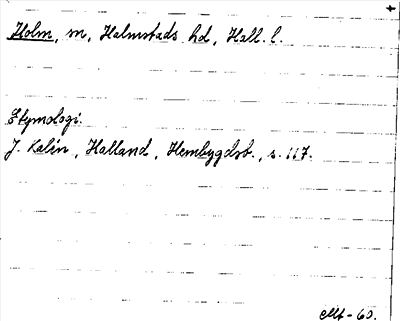 Holm, m, Halmstads hd, Hall. l.
Etymologi.
J. Kalén, Halland, Hembygdsb., s. 117.
Mt-60.